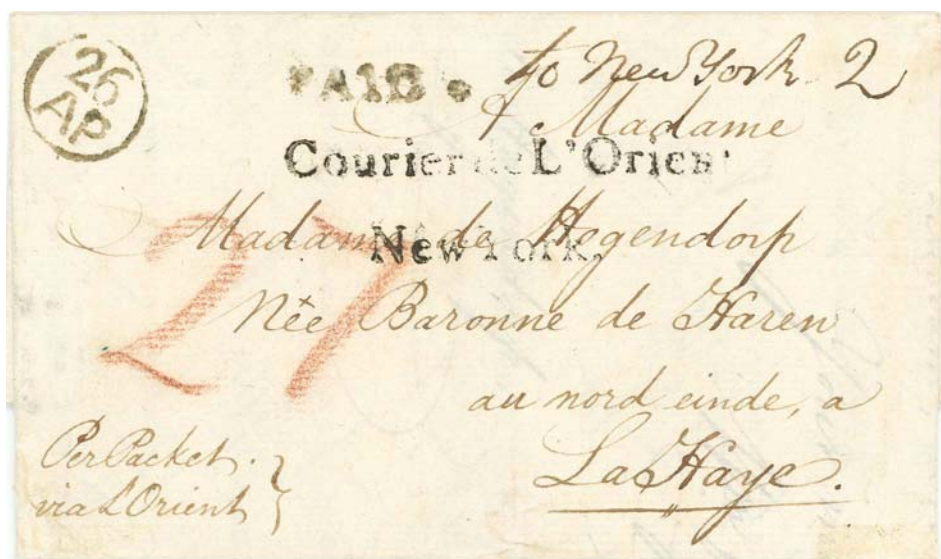 26
AP
PAID to New York 2
Madame
Courier de L'Orient
Madame de Hogendorp
New York.
27
Née Baronne de Haren
au nord einde, a
La Haye.
Per Packet.
via L'Orient